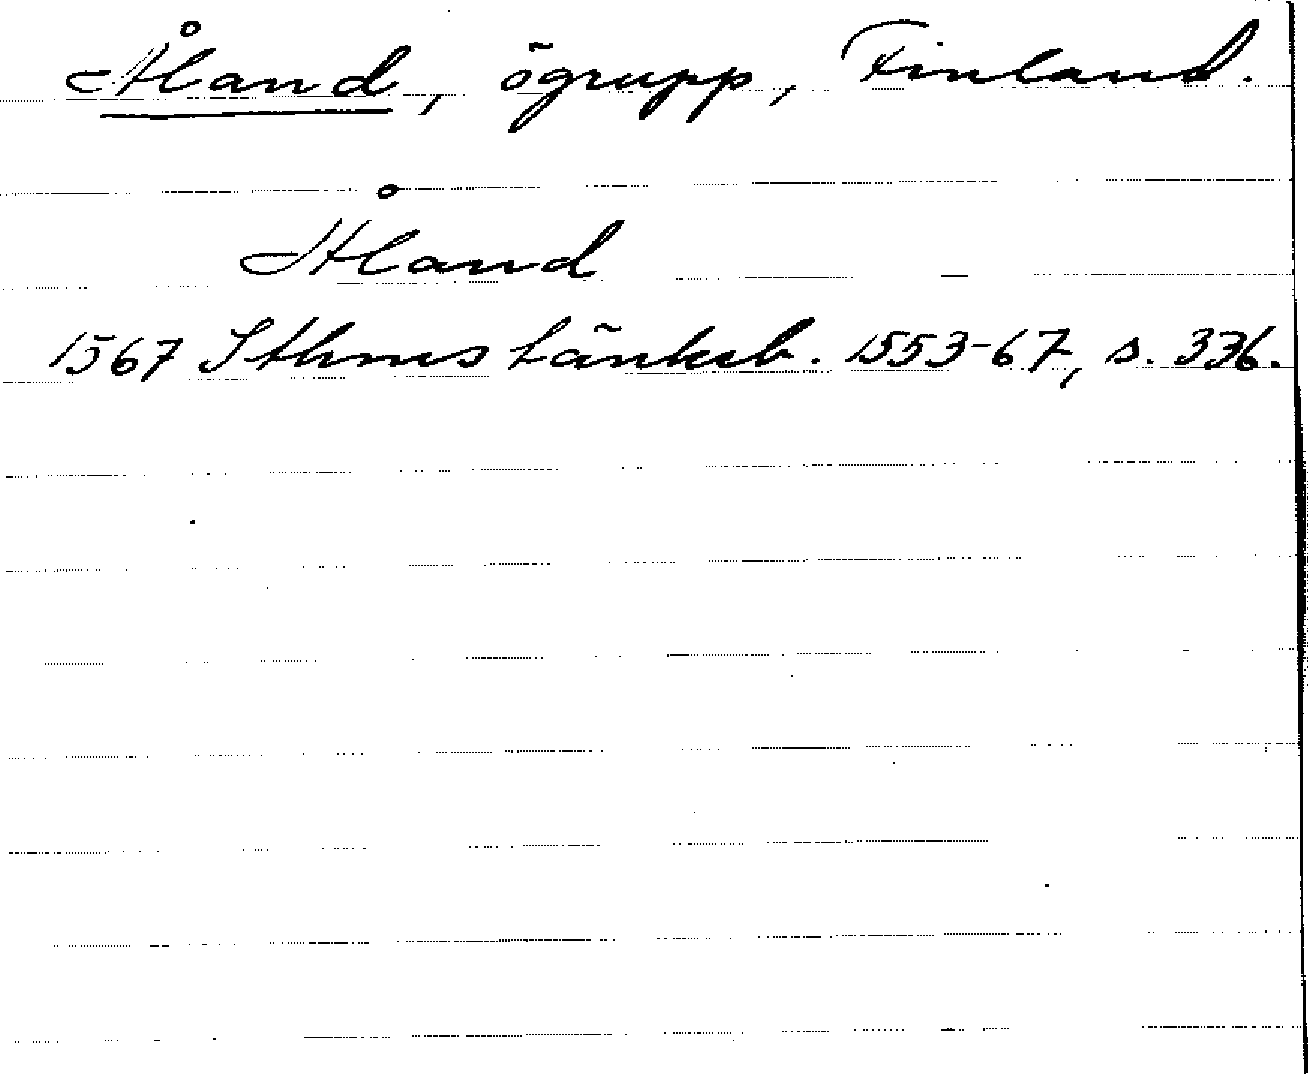 Åland, ögrupp, Finland.
Åland
1567 Sthms tänkeb. 1553-67, s. 336.